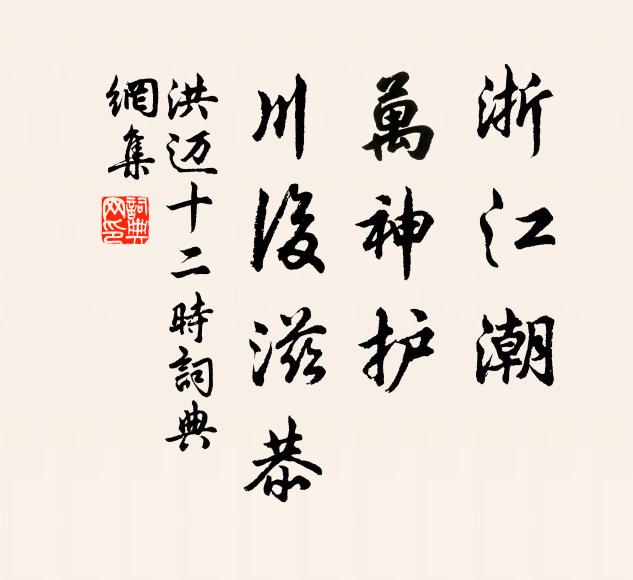 浙江潮
萬神护
川後滋恭
洪迈十二時詞典
網集
詞典
网印